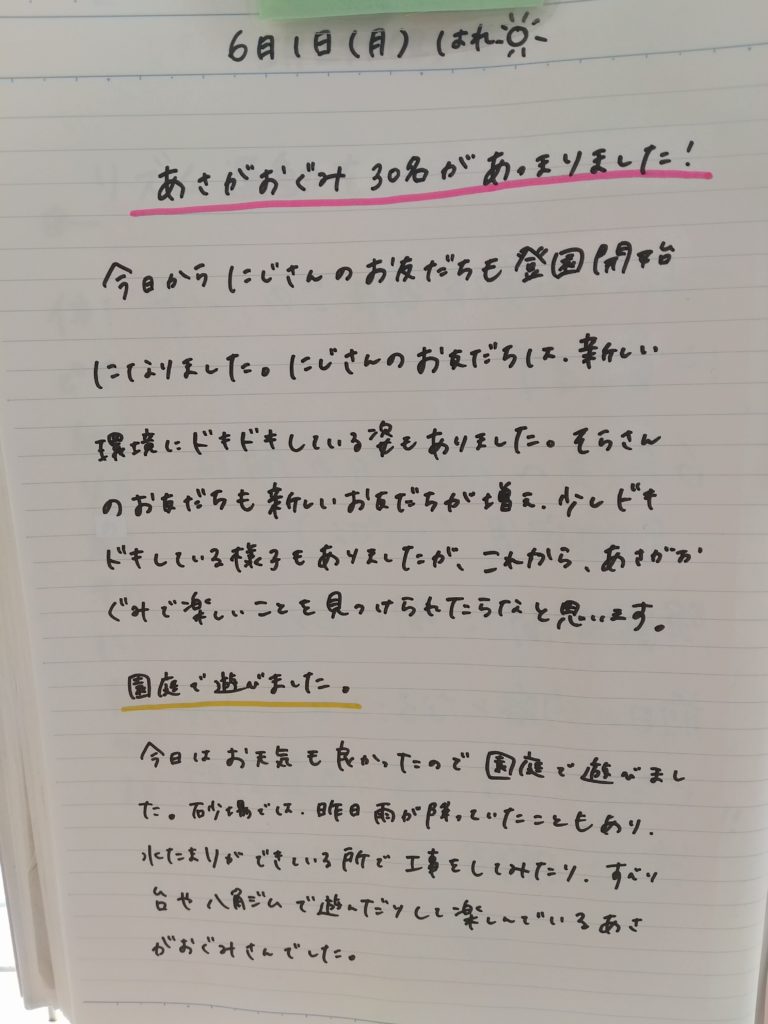 6月1日(月) はれ
あさがおぐみ 30名があつまりました!
今日から にじさんのお友だちも 登園開始
になりました。にじさんのお友だちは、新しい
環境にドキドキしている姿もありました。そらさん
のお友だちも 新しいお友だちが増え、少しドキ
ドキしている様子もありましたが、これから、あさがお
ぐみで楽しいことを見つけられたらなと思います。
園庭で遊びました。
今日はお天気も良かったので園庭で遊びまし
た。砂場では、昨日雨が降っていたこともあり、
水たまりができている所で工事をしてみたり、すべり
台や八角ジムで遊んだりして楽しんでいるあさ
がおぐみさんでした。